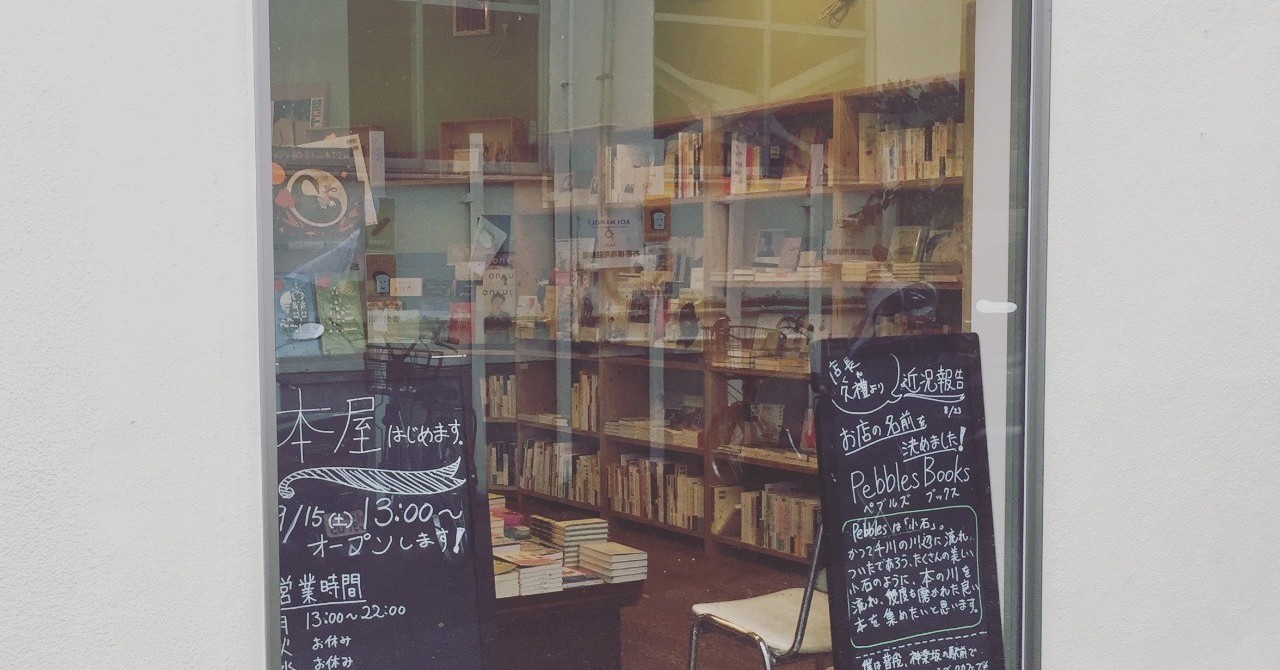 本屋はじめます。
9/15(土)13:00〜
オープンします!
営業時間
月 13:00〜22:00
火 お休み
水 お休み
店長
久禮より
近況報告
8/23
お店の名前を
決めました!
Pebbles Books
ペブルズ ブックス
Pebblesは「小石」。
かつて千川の川辺に流れ
ついたであろう、たくさんの美しい
小石のように、本の川を
流れ、幾度も磨かれた良い
本を集めたいと思います。
僕は普段、神楽坂の駅前で